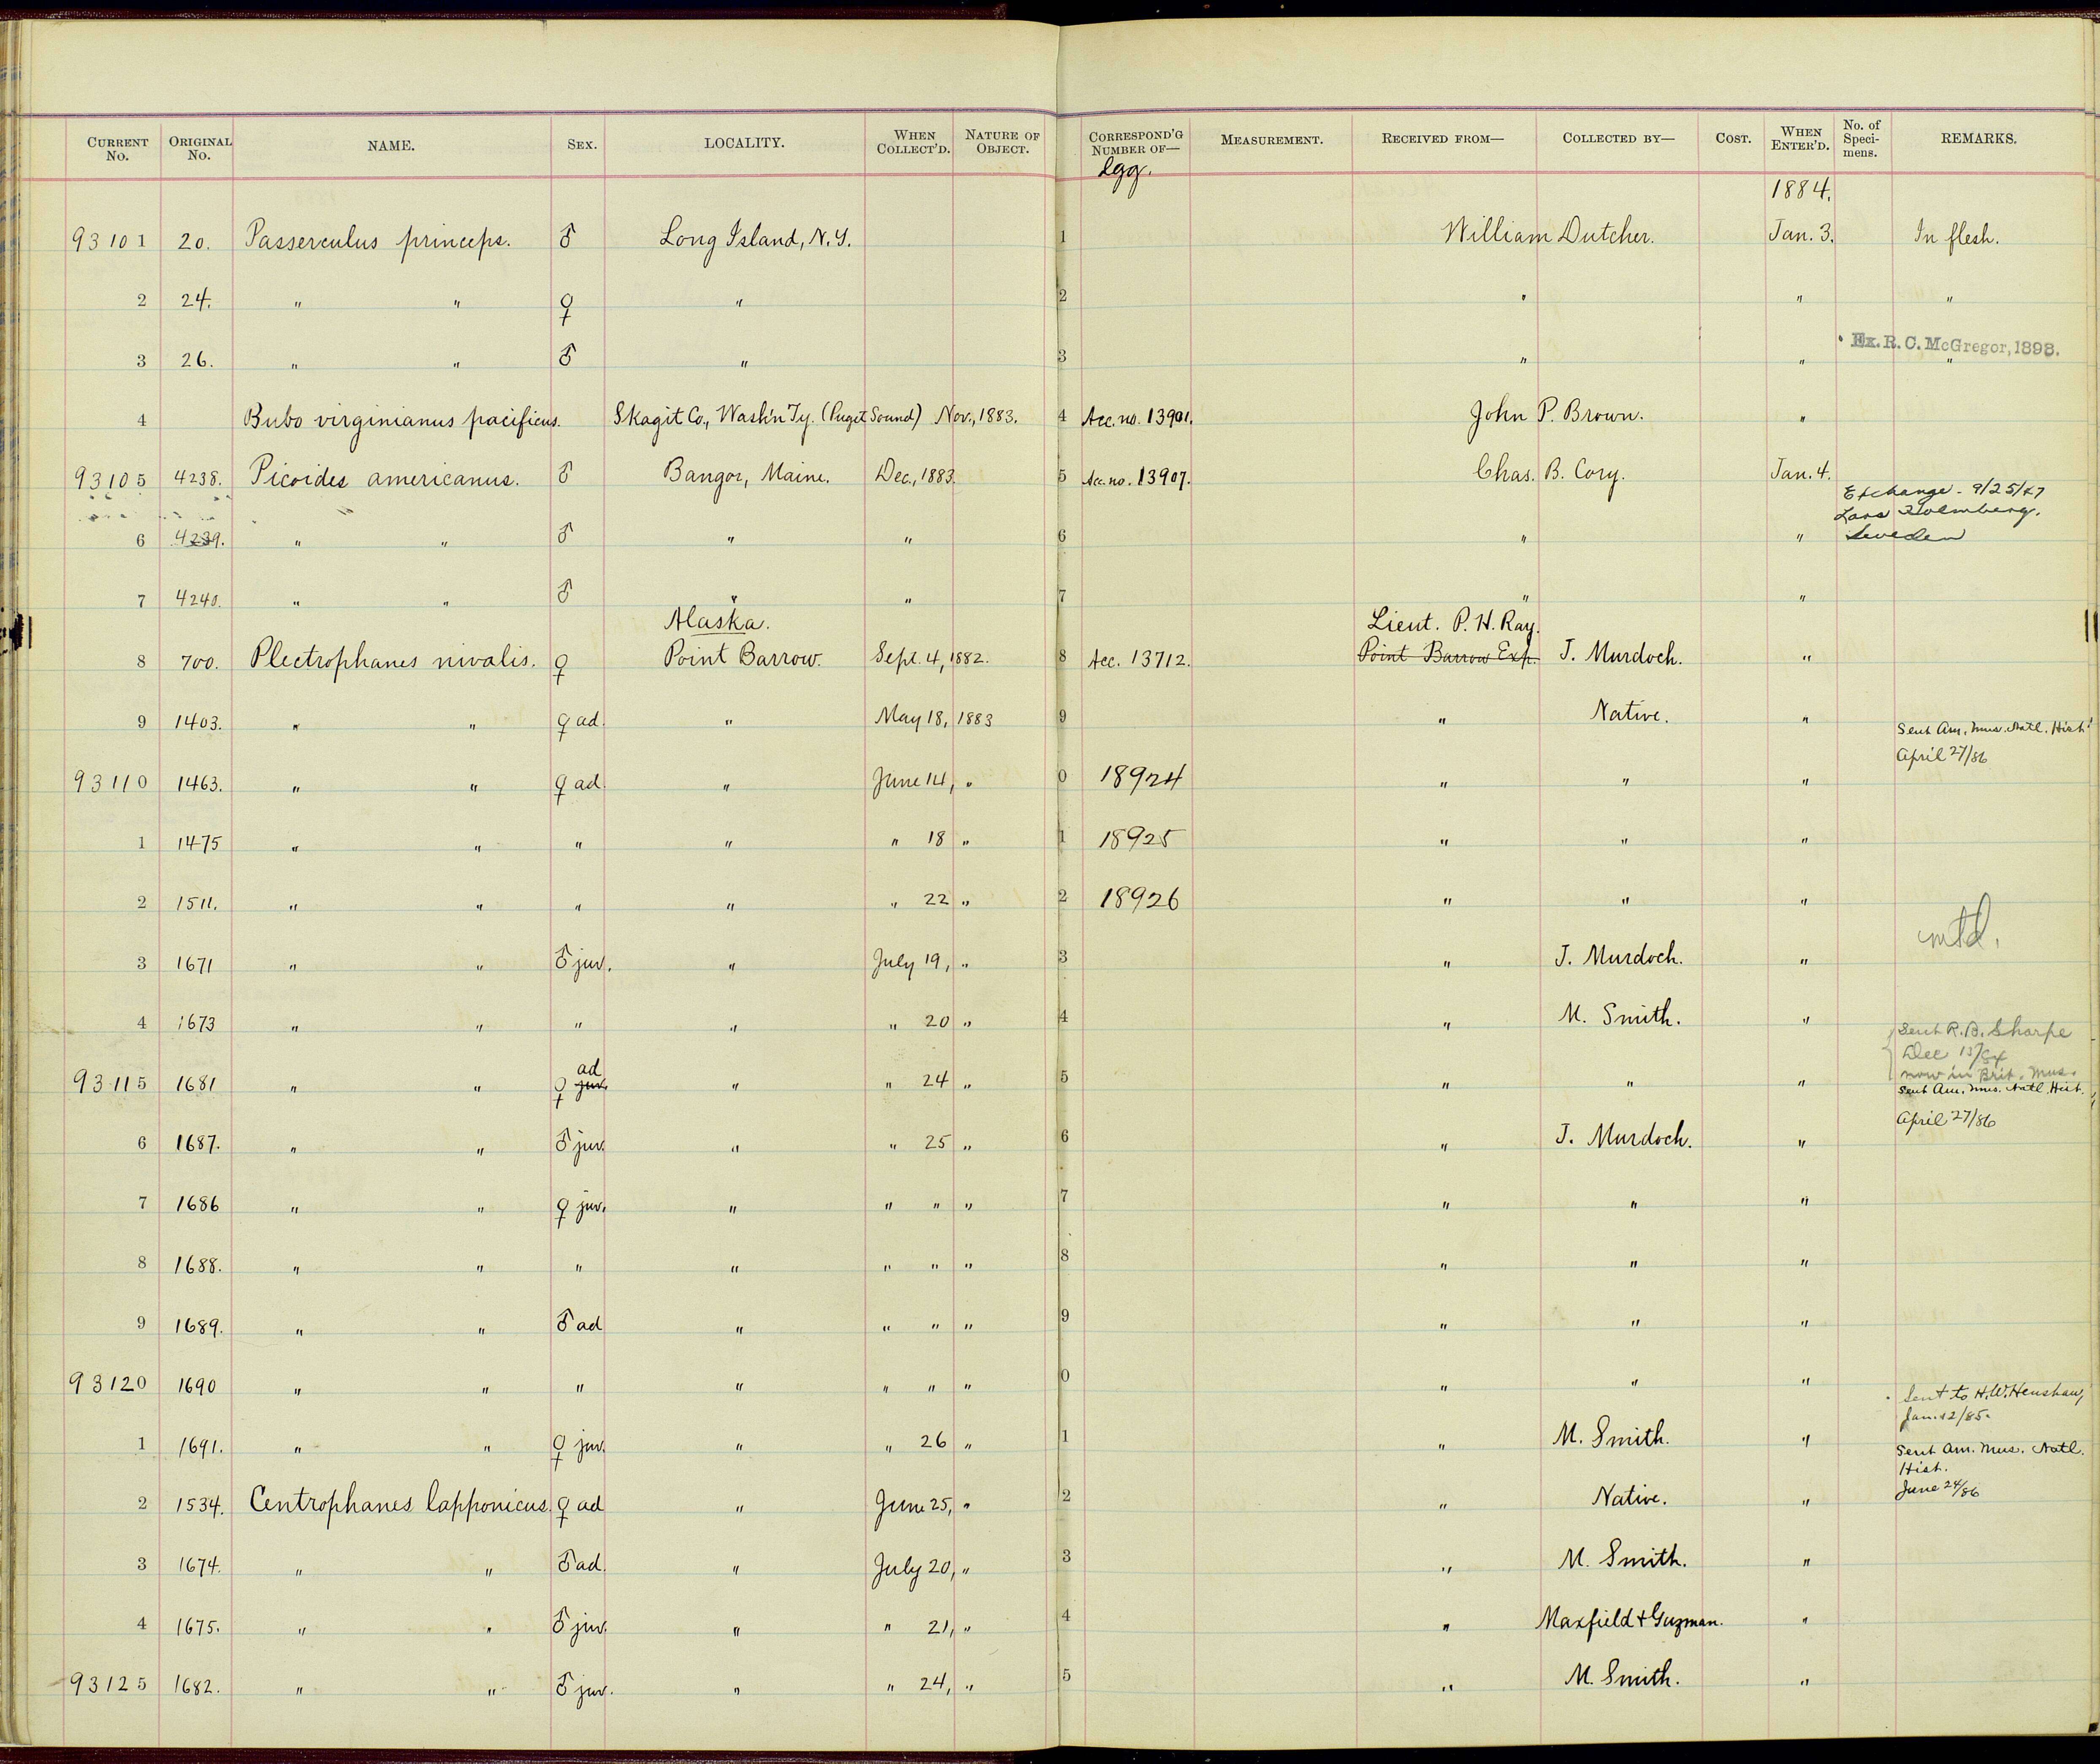 CURRENT No. ORIGINAL No. NAME. SEX. LOCALITY. WHEN COLLECT'D. NATURE OF OBJECT. CORRESPOND'G NUMBER OF— MEASUREMENT. RECEIVED FROM— COLLECTED BY— COST. WHEN ENTER'D. No. of Specimens. REMARKS.
Egg.
1884.
93101 20. Passerculus princeps. ♂ Long Island, N.Y. 1 William Dutcher. Jan. 3. In flesh.
2 24. " " ♀ " 2 " " "
3 26. " " ♂ " 3 " " " Ex. R. C. McGregor, 1898.
4 Bubo virginianus pacificus. Skagit Co., Wash'n Ty. (Puget Sound) Nov., 1883. 4 Acc. no. 13901. John P. Brown. "
93105 4238. Picoides americanus. ♂ Bangor, Maine. Dec., 1883. 5 Acc. no. 13907. Chas. B. Cory. Jan. 4.
Exchange - 9/25/47
Lars Holmberg.
6 4239. " " ♂ " " 6 " " Sweden
7 4240. " " ♂ " " 7 " "
Alaska. Lieut. P. H. Ray.
8 700. Plectrophanes nivalis. ♀ Point Barrow. Sept. 4, 1882. 8 Acc. 13712. Point Barrow Exp. J. Murdoch. "
9 1403. " " ♀ ad. " May 18, 1883 9 " Native. " Sent Am. Mus. Natl. Hist.
April 27/86
93110 1463. " " ♀ ad. " June 14, " 0 18924 " " "
1 1475 " " " " " 18 " 1 18925 " " "
2 1511. " " " " " 22 " 2 18926 " " "
mtd.
3 1671 " " ♂ juv. " July 19, " 3 " J. Murdoch. "
4 1673 " " " " " 20 " 4 " M. Smith. " Sent R. B. Sharpe
Dec 13/84
now in Brit. Mus.
ad
93115 1681 " " ♀ juv. " " 24 " 5 " " " Sent Am. Mus. Natl. Hist.
April 27/86
6 1687. " " ♂ juv. " " 25 " 6 " J. Murdoch. "
7 1686 " " ♀ juv. " " " " 7 " " "
8 1688. " " " " " " " 8 " " "
9 1689. " " ♂ ad " " " " 9 " " "
93120 1690 " " " " " " " 0 " " " Sent to H. W. Henshaw,
Jan. 12/85.
1 1691. " " ♀ juv. " " 26 " 1 " M. Smith. " Sent Am. Mus. Natl.
Hist.
June 24/86
2 1534. Centrophanes lapponicus. ♀ ad " June 25, " 2 " Native. "
3 1674. " " ♂ ad. " July 20, " 3 " M. Smith. "
4 1675. " " ♂ juv. " " 21, " 4 " Maxfield & Guzman. "
93125 1682. " " ♂ juv. " " 24, " 5 " M. Smith. "